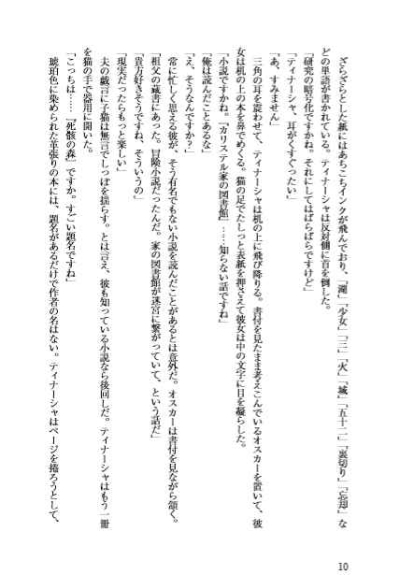 ざらざらとした紙にはあちこちインクが飛んでおり、「滝」「少女」「三」「火」「城」「五十二」「裏切り」「忘却」な
どの単語が書かれている。ティナーシャは反対側に首を倒した。
「研究の暗号化ですかね。それにしてはばらばらですけど」
「ティナーシャ、耳がくすぐったい」
「あ、すみません」
三角の耳を震わせて、ティナーシャは机の上に飛び降りる。書付を見たまま考えこんでいるオスカーを置いて、彼
女は机の上の本を鼻でめくる。猫の足でたしっと表紙を押さえて彼女は中の文字に目を凝らした。
「小説ですかね。『カリステル家の図書館』……知らない話ですね」
「俺は読んだことあるな」
「え、そうなんですか?」
常に忙しく思える彼が、そう有名でもない小説を読んだことがあるとは意外だ。オスカーは書付を見ながら頷く。
「祖父の蔵書にあった。冒険小説だったんだ。家の図書館が迷宮に繋がっていて、という話だ」
「貴方好きそうですね、そういうの」
「現実だったらもっと楽しい」
夫の戯言に子猫は無言でしっぽを揺らす。とは言え、彼も知っている小説なら後回しだ。ティナーシャはもう一冊
を猫の手で器用に開いた。
「こっちは……『死骸の森』ですか。すごい題名ですね」
琥珀色に染められた革張りの本には、題名があるだけで作者の名はない。ティナーシャはページを捲ろうとして、
10